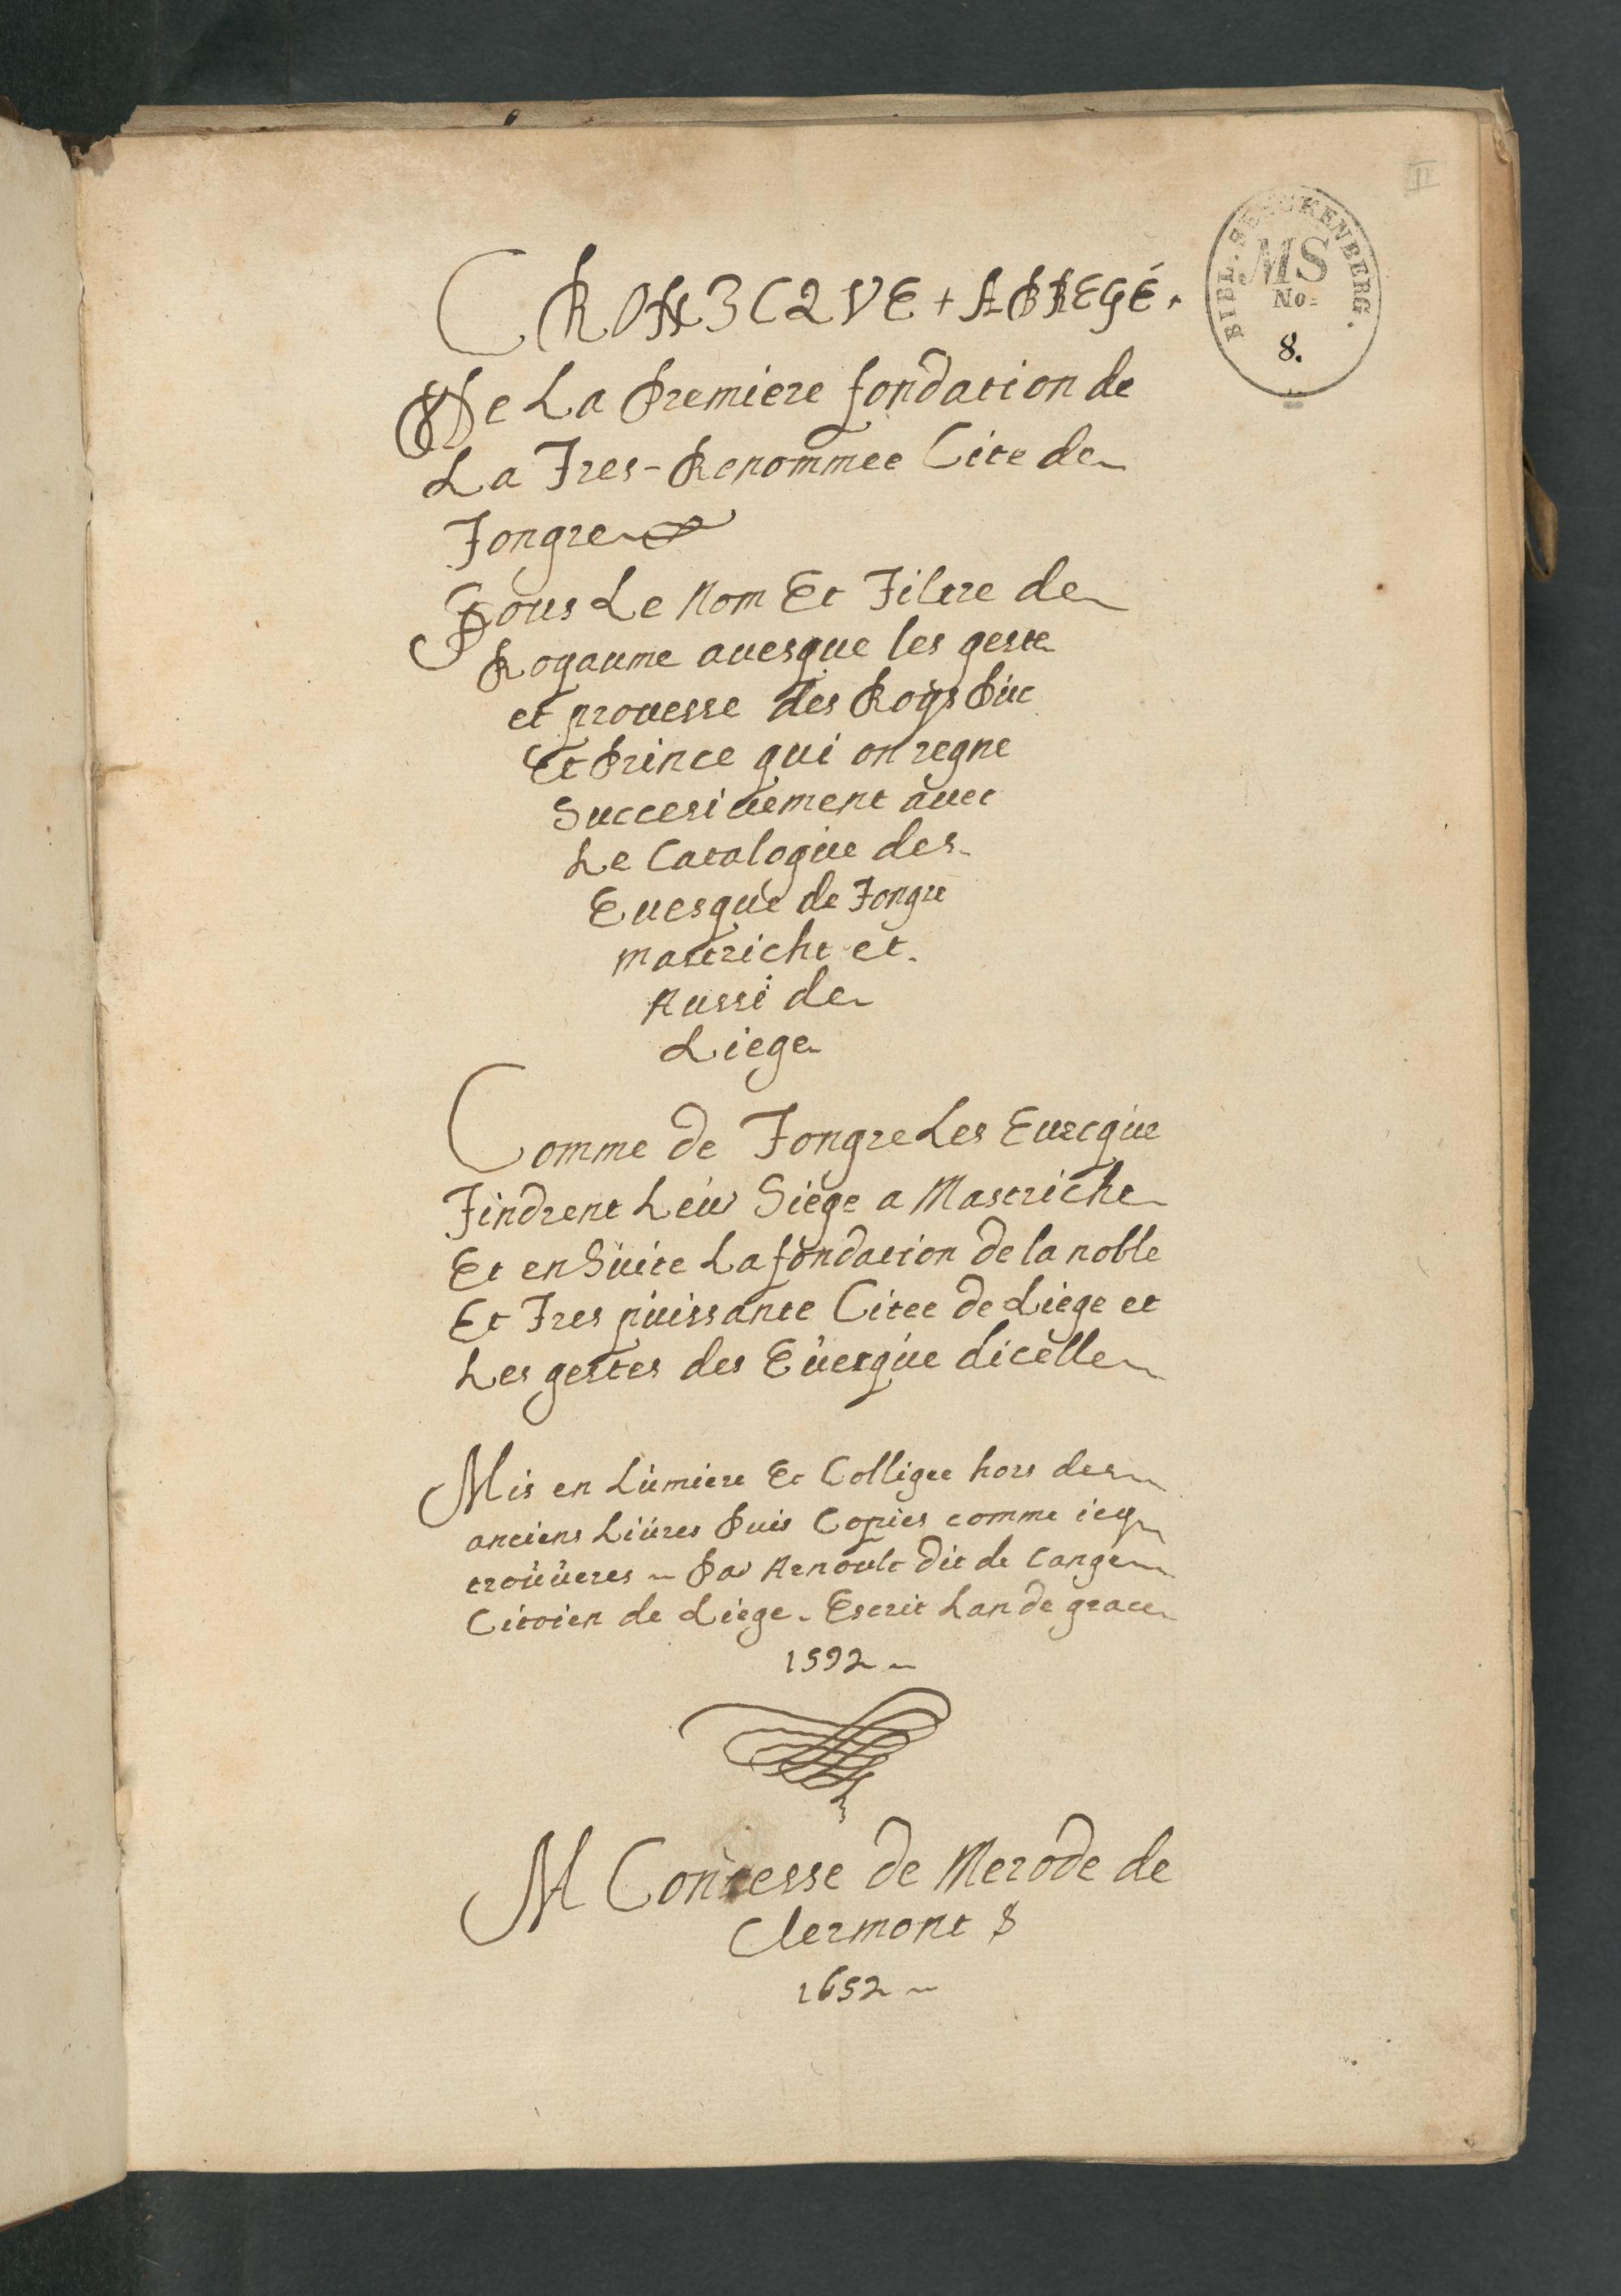 II
BIBL. SENCKENBERG.
MS
No=
8.
CRONICQVE + ABREGÉ.
De La Premiere fondation de
La Tres-Renommee Cite de
Tongre
Sous Le Nom Et Tiltre de
Royaume auesque les geste
et prouesse des Roys Duc
Et Prince qui on regne
Succesiuement auec
Le Catalogue des
Euesque de Tongre
mastricht et
Aussi de
Liege
Comme de Tongre Les Euecque
Tindrent Leur Siege a Mastricht
Et en Suite La fondation de la noble
Et Tres puissante Citee de Liege et
Les gestes des Euesque dicelle
Mis en Lumiere Et Colligee hors des
anciens Liures Puis Copies comme icy
trouueres Par Arnoult dit de Cange
Citoien de Liege. Escrit Lan de grace
1592
M Contesse de Merode de
Clermont
1652